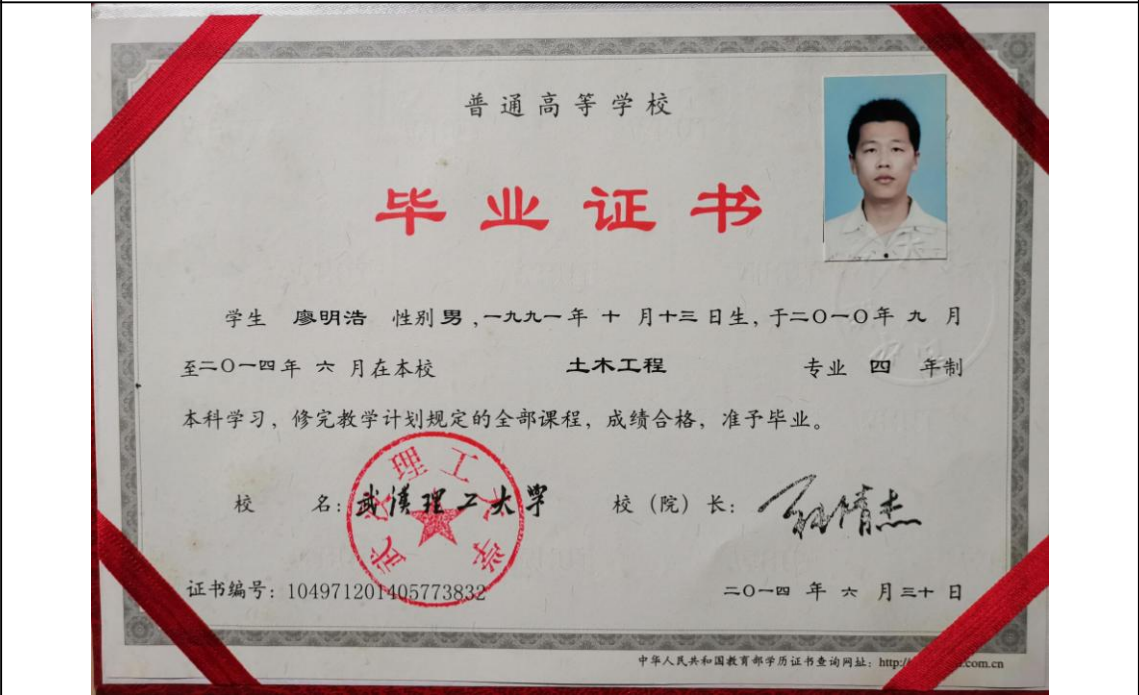 普通高等学校
毕业证书
学生 廖明浩 性别男,一九九一年 十 月十三日生,于二〇一〇年 九 月
至二〇一四年 六 月在本校 土木工程 专业 四 年制
本科学习,修完教学计划规定的全部课程,成绩合格,准予毕业。
校 名:武漢理工大学 校(院)长:
武汉理工大学
证书编号:104971201405773832 二〇一四 年 六 月三十日
中华人民共和国教育部学历证书查询网址:http:// .com.cn